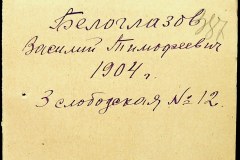 Белоглазов
Василий Тимофеевич
1904 г.
3 слободская № 12.